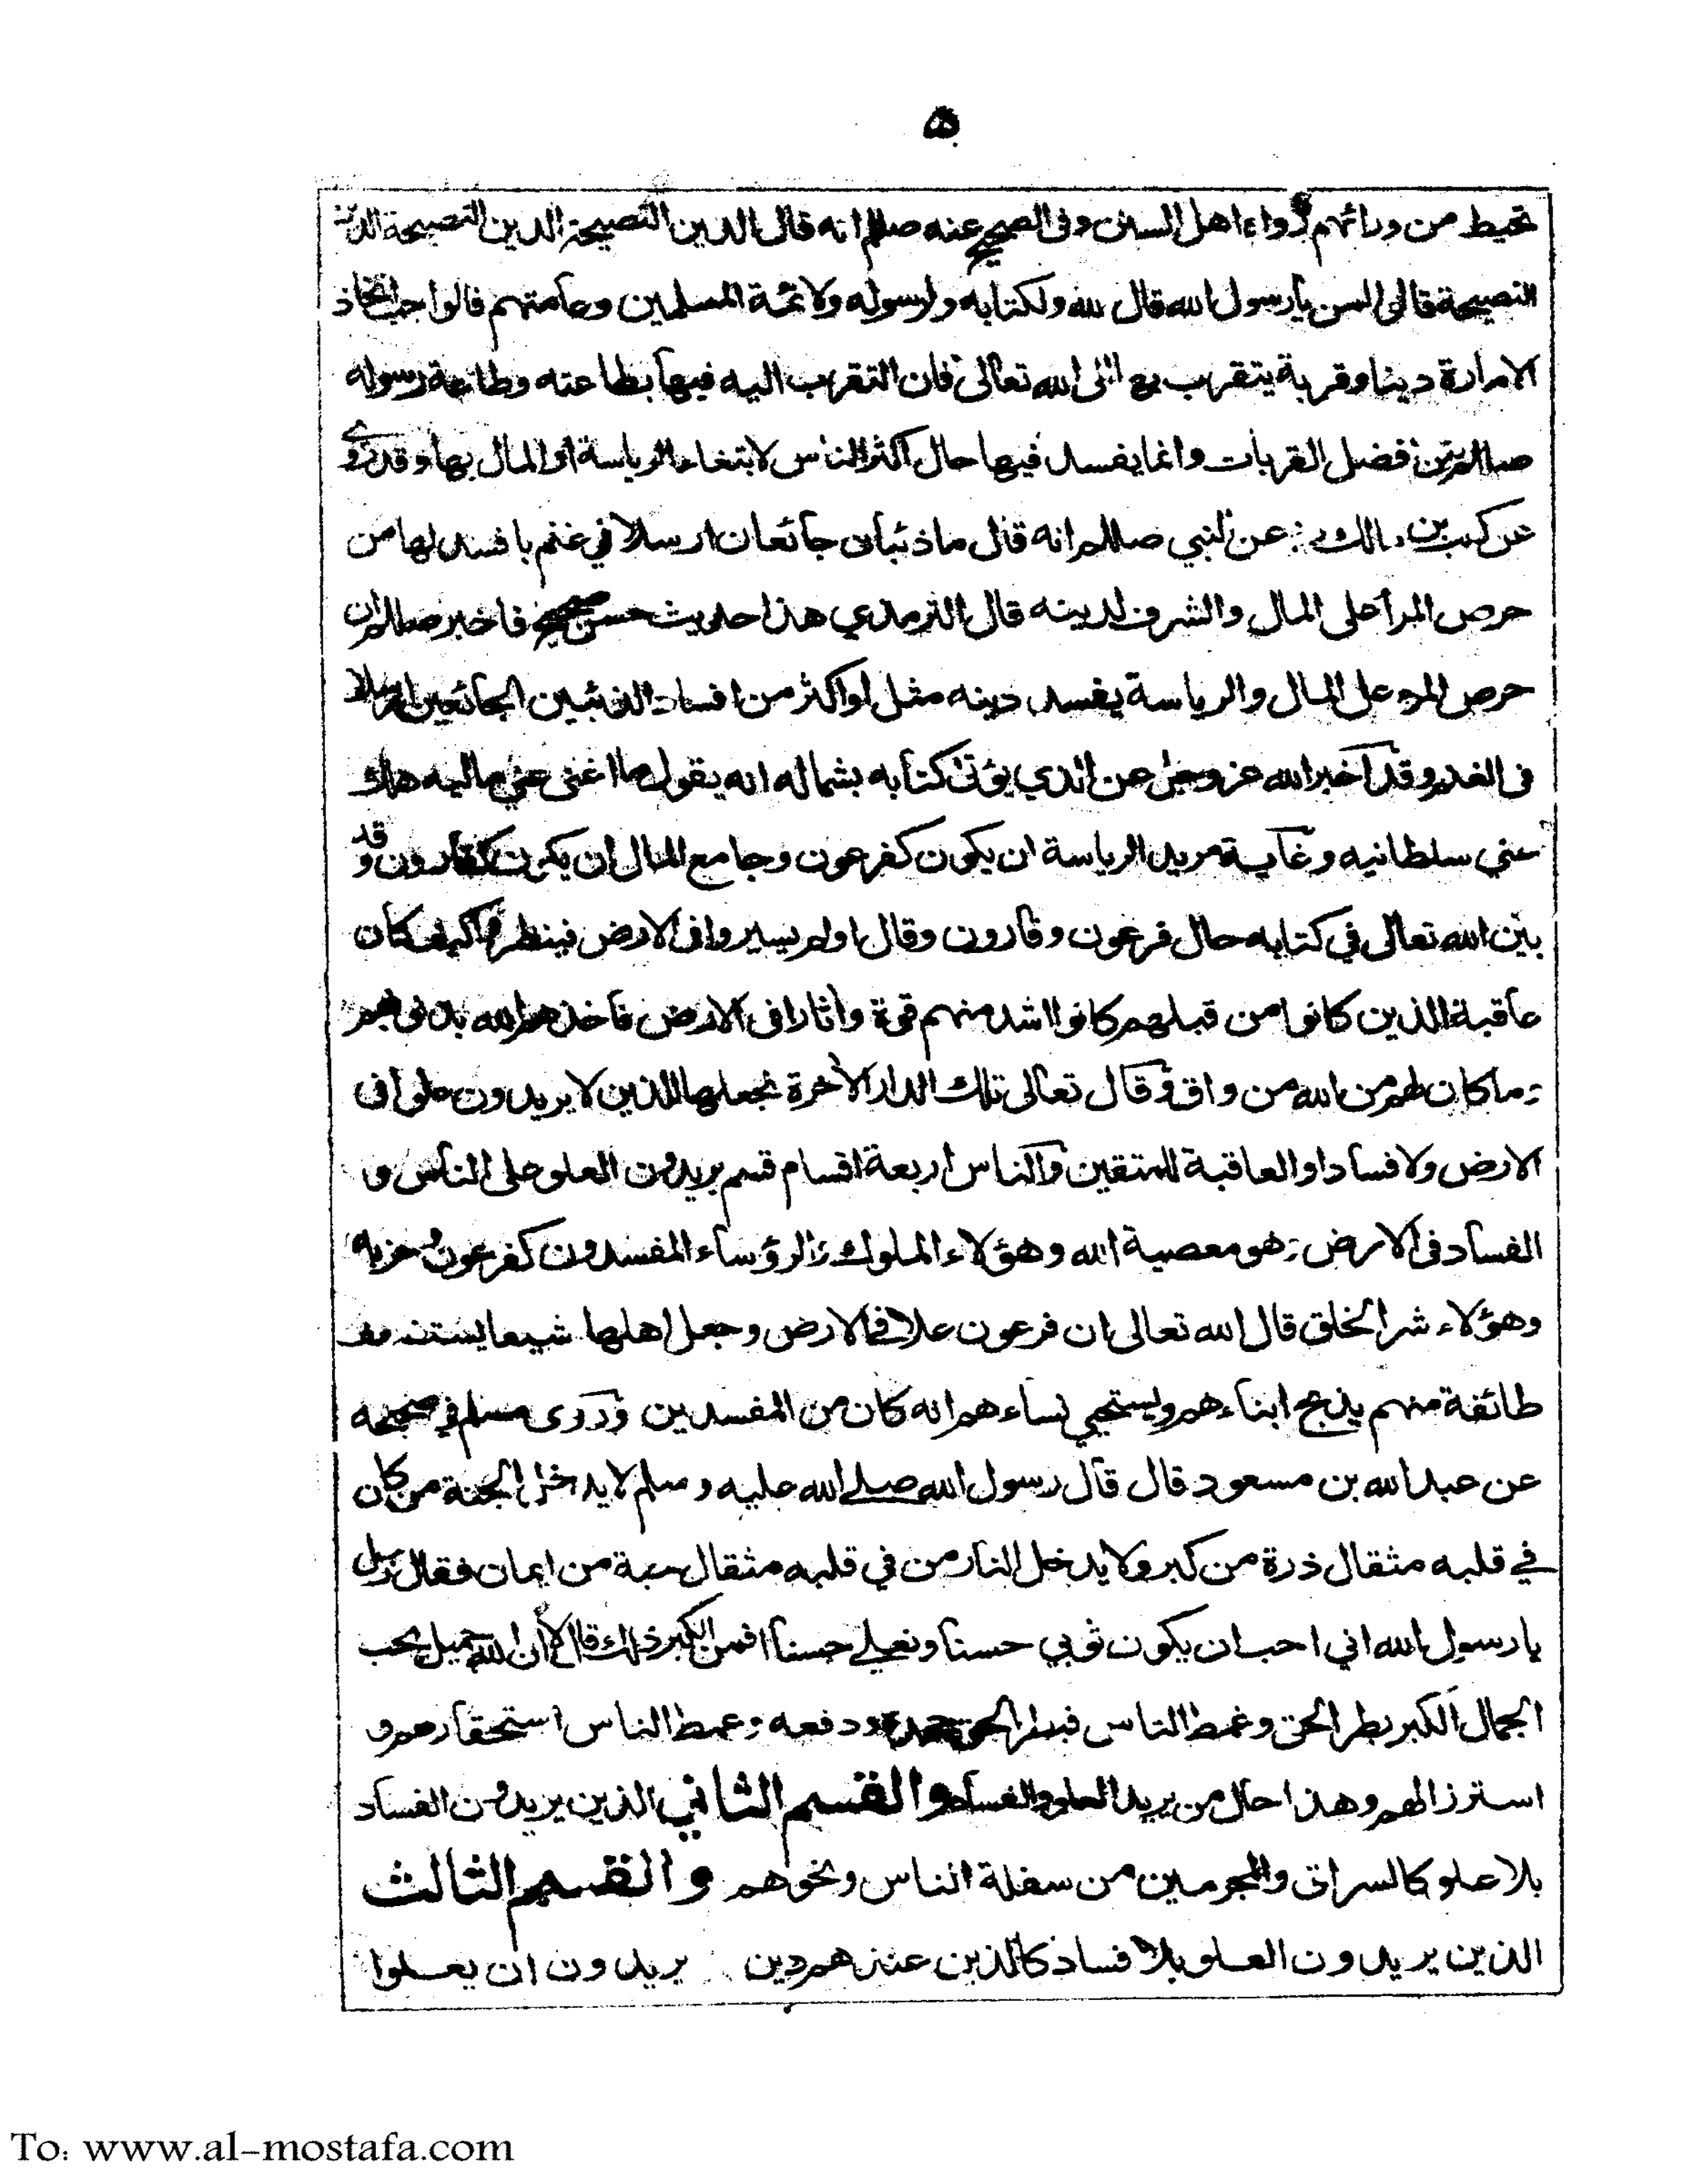 ٥
تحيط من ورائهم رواه اهل السنن وفى الصحيح عنه صللم انه قال الدين النصيحة الدين النصيحة الدين
النصيحة قالوا لمن يا رسول الله قال لله ولكتابه ولرسوله ولائمة المسلمين وعامتهم فالواجب اتخاذ
الامارة دينا وقربة يتقرب بها الى الله تعالى فان التقرب اليه فيها بطاعته وطاعة رسوله
صللم من افضل القربات وانما يفسد فيها حال اكثر الناس لابتغاء الرياسة او المال بها وقد روى
عن كعب بن مالك عن النبي صللم انه قال ما ذئبان جائعان ارسلا في غنم بافسد لها من
حرص المرأ على المال والشرف لدينه قال الترمذي هذا حديث حسن صحيح فاخبر صللم ان
حرص المرء على المال والرياسة يفسد دينه مثل او اكثر من افساد الذئبين الجائعين ارسلا
فى الغنم وقد اخبر الله عز وجل عن الذي يؤتى كتابه بشماله انه يقول ما اغنى عني ماليه هلك
عني سلطانيه وغاية مريد الرياسة ان يكون كفرعون وجامع المال ان يكون كقارون وقد
بين الله تعالى في كتابه حال فرعون وقارون وقال اولم يسيروا فى الارض فينظروا كيف كان
عاقبة الذين كانوا من قبلهم كانوا اشد منهم قوة واثارا فى الارض فاخذهم الله بذنوبهم
وما كان لهم من الله من واق وقال تعالى تلك الدار الاخرة نجعلها للذين لا يريدون علوا فى
الارض ولا فسادا والعاقبة للمتقين والناس اربعة اقسام قسم يريدون العلو على الناس و
الفساد فى الارض وهو معصية الله وهؤلاء الملوك والرؤساء المفسدون كفرعون وحزبه
وهؤلاء شر الخلق قال الله تعالى ان فرعون علا فى الارض وجعل اهلها شيعا يستضعف
طائفة منهم يذبح ابناءهم ويستحيي نساءهم انه كان من المفسدين وروى مسلم في صحيحه
عن عبد الله بن مسعود قال قال رسول الله صلے الله عليه وسلم لا يدخل الجنة من كان
في قلبه مثقال ذرة من كبر ولا يدخل النار من في قلبه مثقال حبة من ايمان فقال رجل
يا رسول الله اني احب ان يكون ثوبي حسنا ونعلے حسنا افمن الكبر ذلك قال لا ان الله جميل يحب
الجمال الكبر بطر الحق وغمط الناس فبطر الحق جحده ودفعه وغمط الناس استحقارهم و
استرذالهم وهذا حال من يريد العلو والفساد والقسم الثاني الذين يريدون الفساد
بلا علو كالسراق والمجرمين من سفلة الناس ونحوهم والقسم الثالث
الذين يريدون العلو بلا فساد كالذين عندهم دين يريدون ان يعلوا
To: www.al-mostafa.com